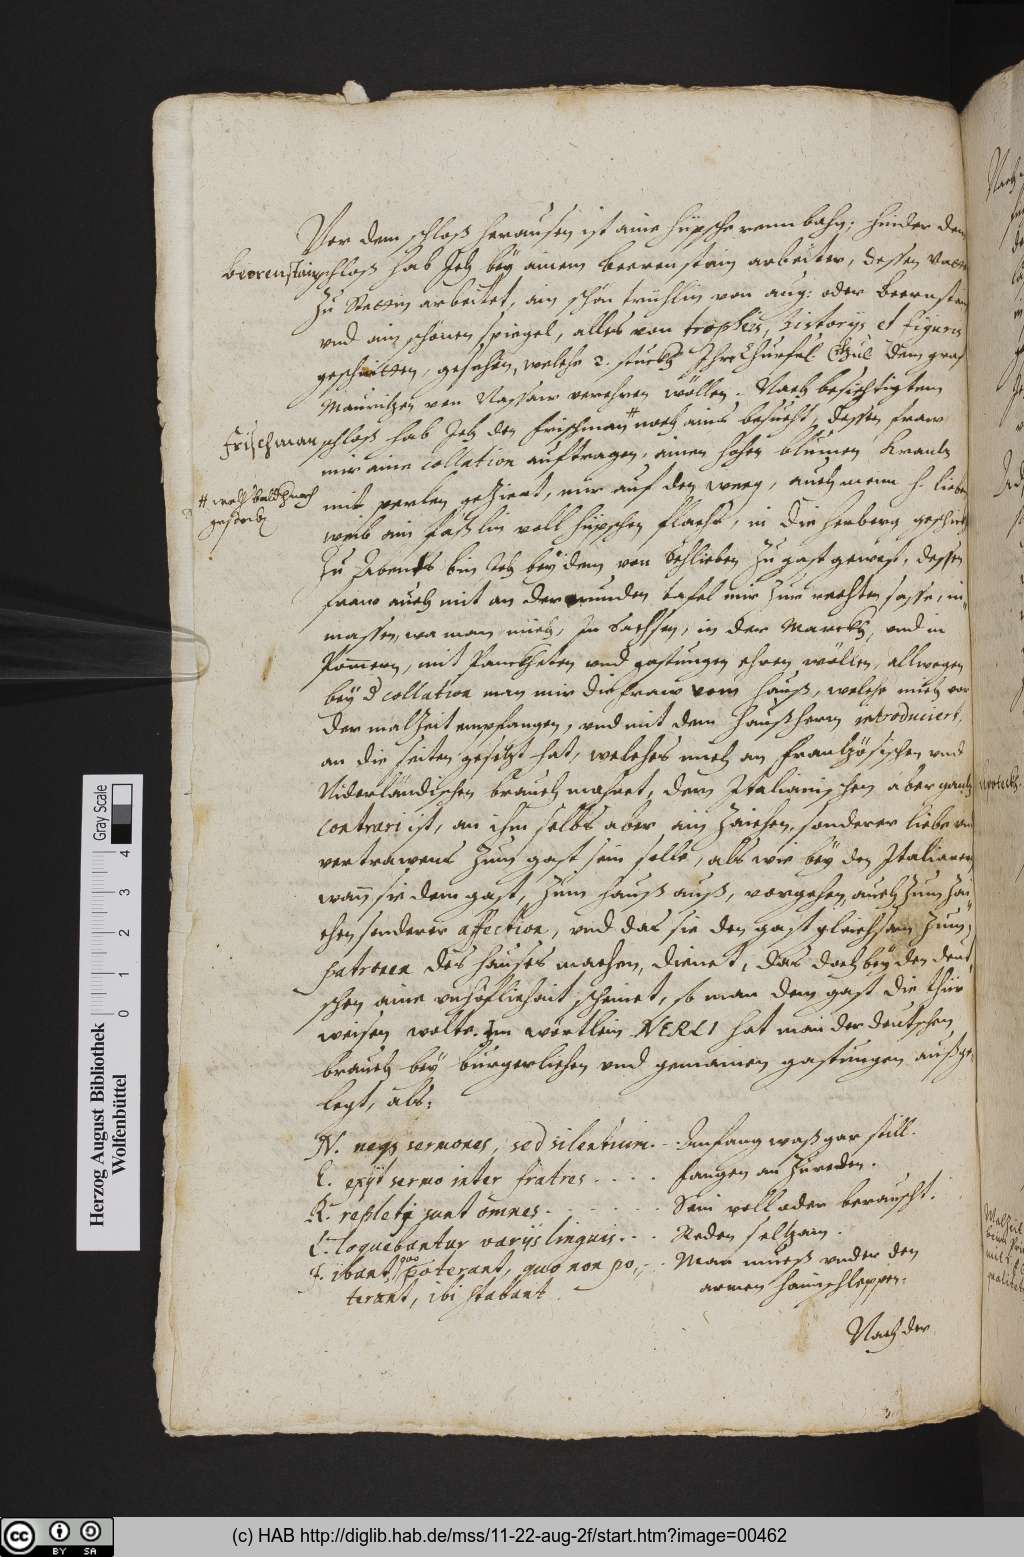 Vor dem schloß heraussen ist aine hüpsche rennbahn; hinder dem
Beorenstain
schloß hab Ich bey ainem beerenstain arbeiter, dessen Vatter
Zu Stettin arbeitet, ain schön trühlin von aug: oder Beernstain
vnd ain schönen spiegel, alles von tropheis, historijs et figuris
geschnitten, gesehen, welche 2. stuckh Ihre Churfl. dem graf
Mauritzen von Nassaw verehren wöllen. Nach besichtigtem
Frischman
schloß hab Ich den Frischman # noch ains besucht, dessen fraw
mir aine collation auftragen, ainen hohen blumen Krantz
# welcher bald hernach
gestorben
mit perlen geziert, nur auf den weeg, auch meim h. lieben
weib ain fäßlin voll hüpschen flachs, in die herberg geschickt
Zu Abents bin Ich bey dem von Schlieben zu gast gewest, dessen
fraw auch mit an der runden tafel mir zur rechten sasse, in-
massen, wa man mich, In Sachsen, in der Marckh, vnd in
Pommern, mit Panckheten vnd gastungen ehren wöllen, allwegen
bey d collation man mir die fraw vom hauß, welche mich vor
der malzeit empfangen, vnd mit dem haußherrn introduciert,
an die seiten gesetzt hat, welches mich an Frantzösischen vnd
Niderländischen brauch mahnet, dem Italianischen aber gantz
contrari ist, an ihm selbs aber ain zaichen, sonderer liebe vnd
vertrawens zum gast sein solle, als wie bey den Italianern
wann sie dem gast, zum hauß auß, vorgehen, auch zum zai-
chen sonderer affection, vnd das sie den gast gleichsam zum
patronen des hauses machen, dienet, das doch bey den deut-
schen aine vnhöflichait scheinet, so man dem gast die thür
weisen wolte. Im wörtlein NERLI hat man der deutschen
brauch bey burgerlichen vnd gemainen gastungen außge-
legt, als:
N. neqs sermones, sed silentium. - Anfang waß gar still.
E. exijt sermo inter fratres . . . . fangen an zureden.
R. repleti sunt omnes . . . . . . Sein voll oder berauscht.
L. loquebantur varijs linguis . . . Reden seltzam.
I. ibant quo poterant, quo non po- . . Man mueß vnder den
terant, ibi stabant. armen haimschleppen.
Nach der
Herzog August Bibliothek
Wolfenbüttel
0 1 2 3 4
Gray Scale
CC BY SA
(c) HAB http://diglib.hab.de/mss/11-22-aug-2f/start.htm?image=00462